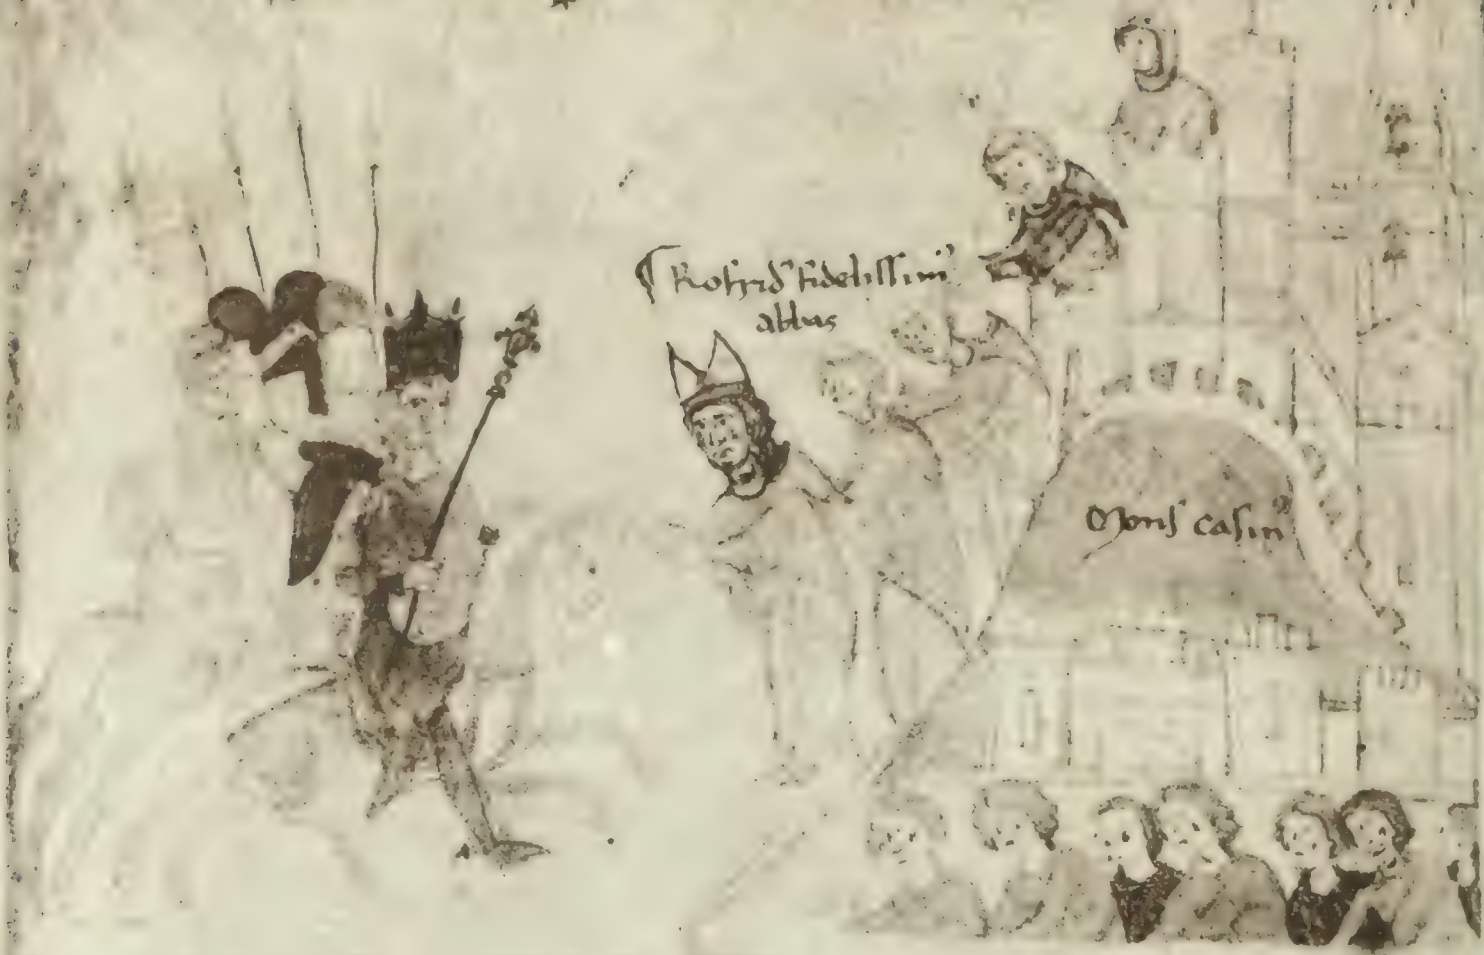 Rofrid' fidelissim'
abbas
Mons casin'